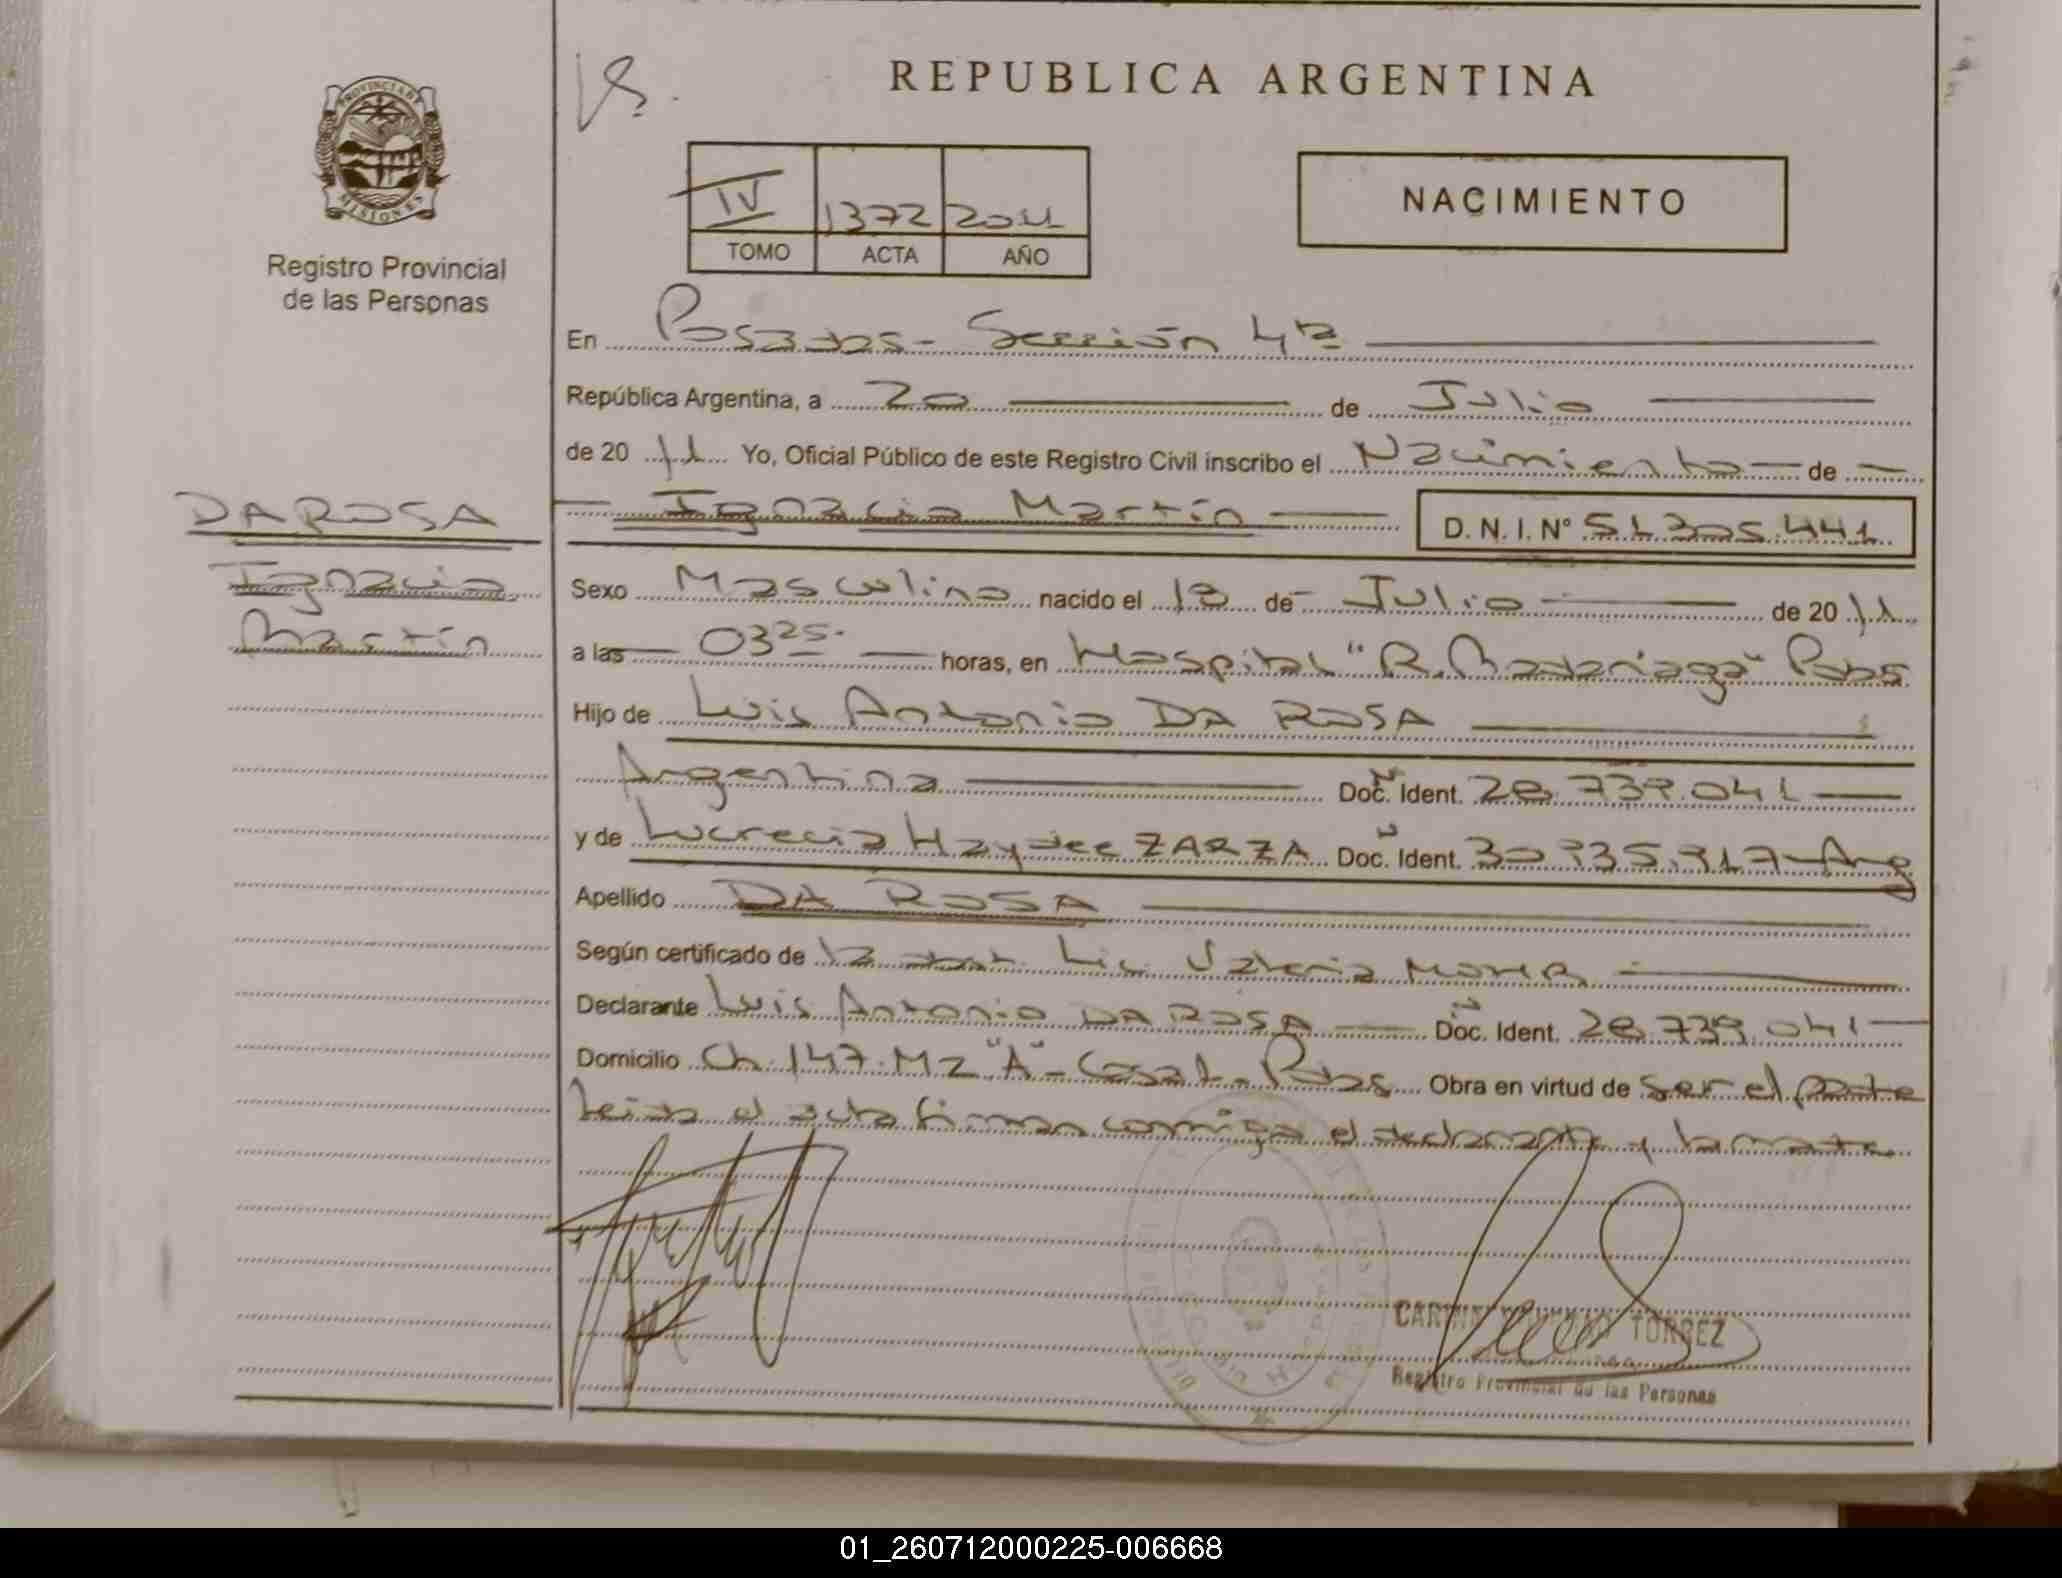 PROVINCIA DE
MISIONES
Registro Provincial
de las Personas
DA ROSA
Ignacio
Martín
REPUBLICA ARGENTINA
IV 1372 2011
TOMO ACTA AÑO
NACIMIENTO
En Posadas - Sección 4ta
República Argentina, a 20 de Julio
de 20 11 Yo, Oficial Público de este Registro Civil inscribo el Nacimiento de
Ignacio Martín D. N. I. Nº 51.305.441
Sexo Masculino nacido el 18 de Julio de 20 11
a las 0325 horas, en Hospital "R. Madariaga" Pdas
Hijo de Luis Antonio DA ROSA
Argentina Doc. Ident. 28.739.041
y de Lucrecia Haydee ZARZA Doc. Ident. 30.735.917 - Arg
Apellido DA ROSA
Según certificado de la Lic. Valeria
Declarante Luis Antonio DA ROSA Doc. Ident. 28.739.041
Domicilio Ch. 147. Mz "A" - Casa 1 - Pdas Obra en virtud de ser el padre
Leida el acta firman conmigo el declarante y la madre
TORREZ
Registro Provincial de las Personas
01_260712000225-006668